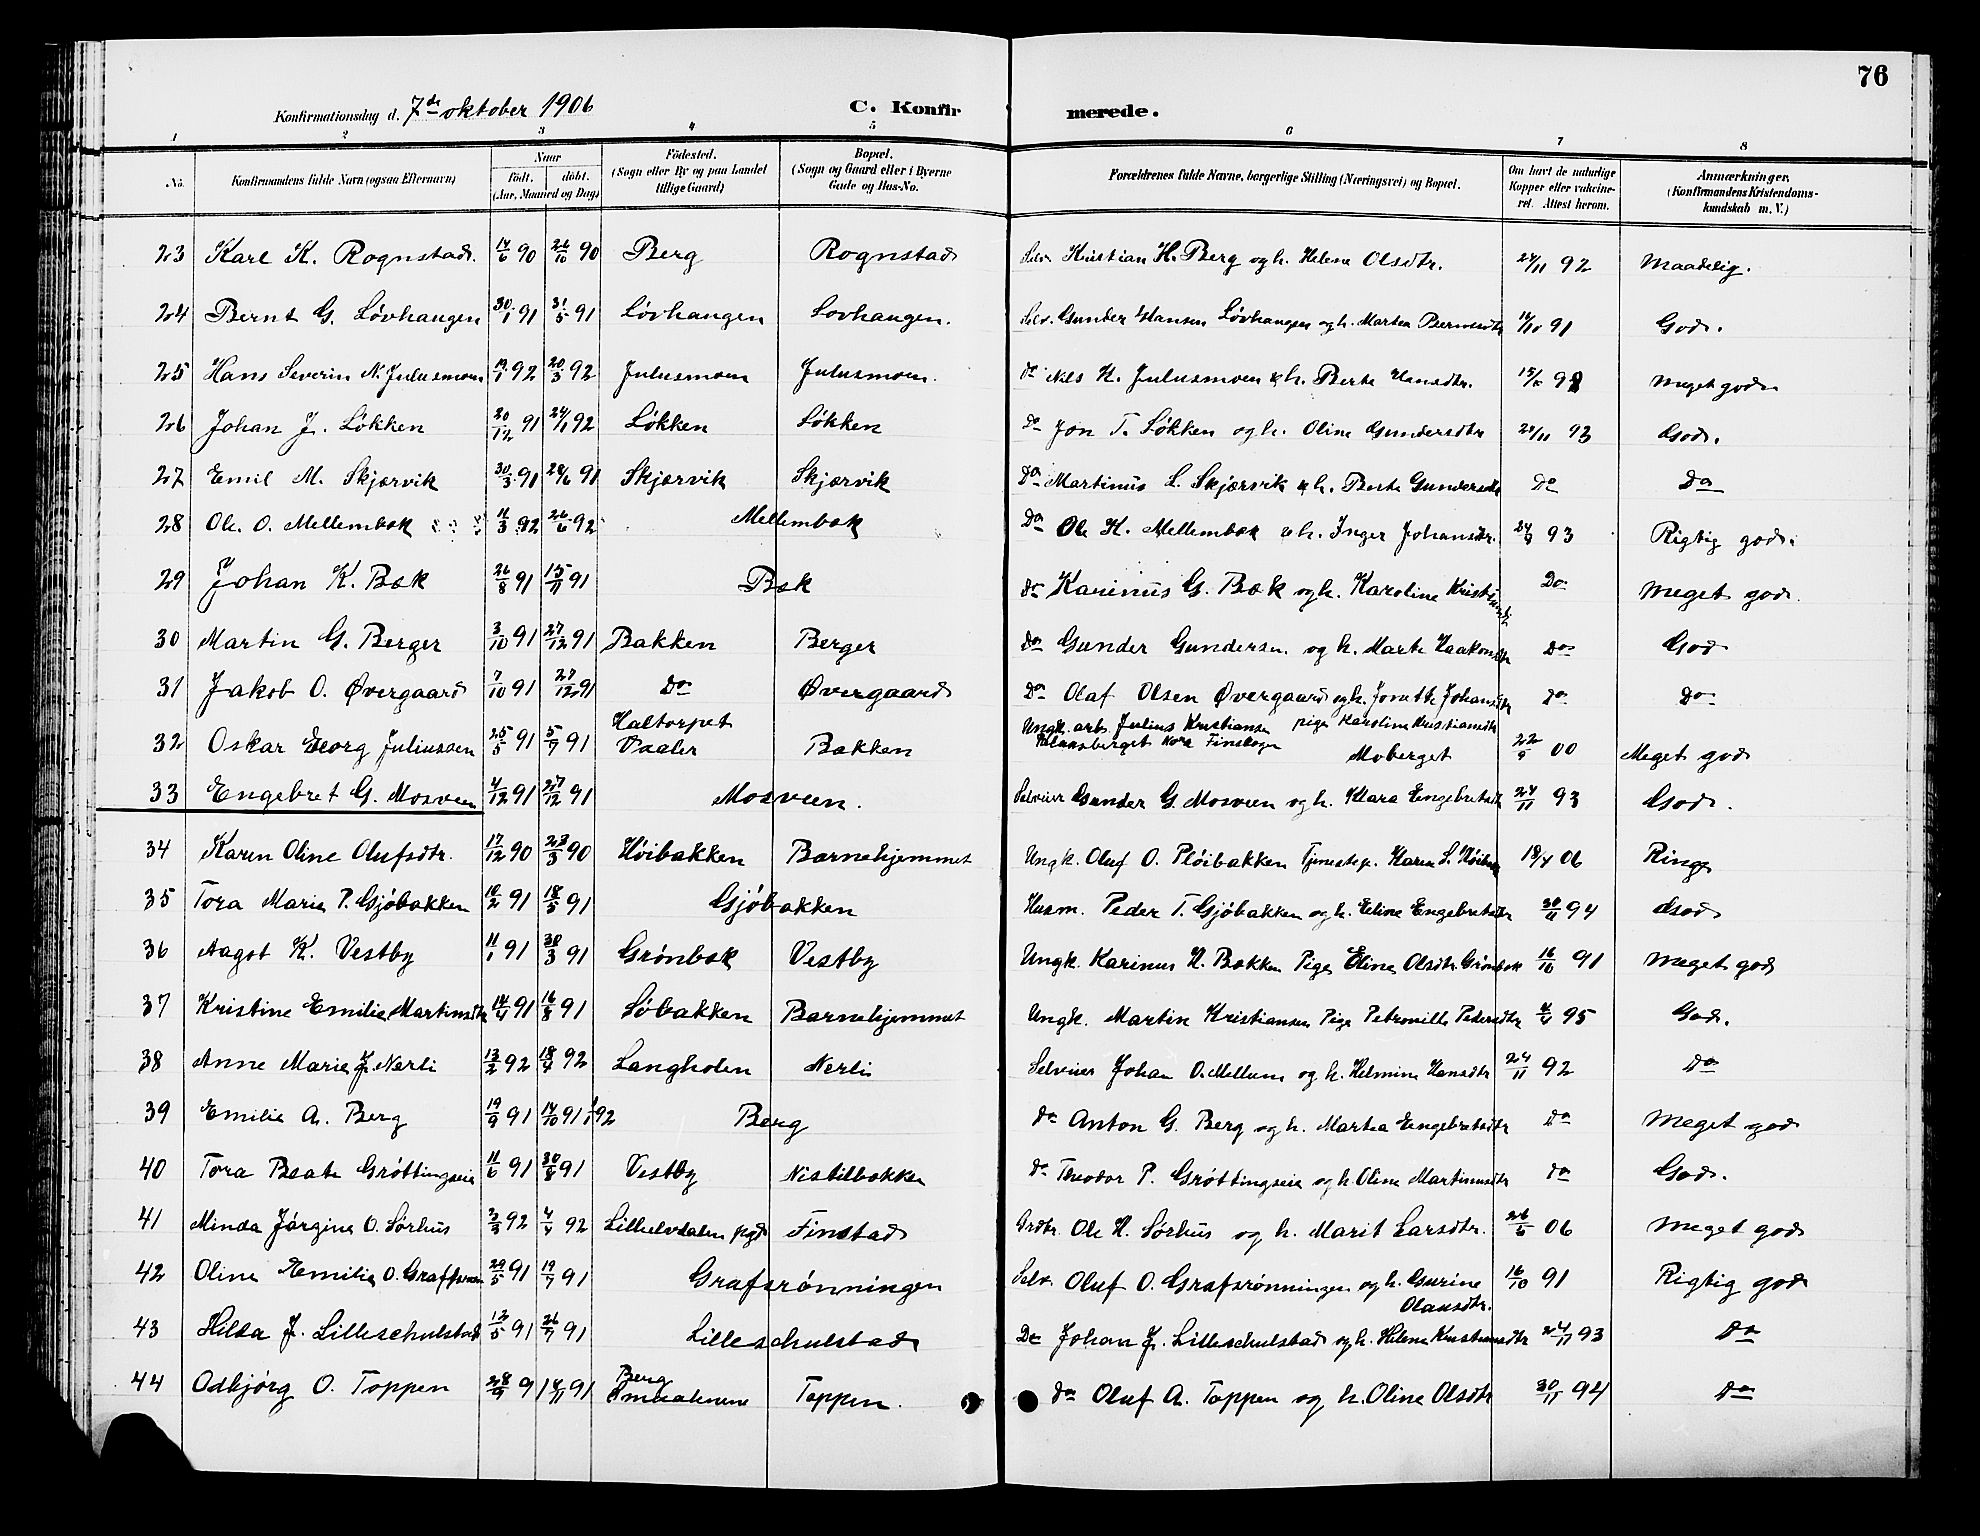 76
Konfirmationsdag d. 7de oktober 1906 C. Konfirmerede.
1 2 3 4 5 6 7 8
No. Konfirmandens fulde Navn (ogsaa Efternavn) Naar födt. döbt. (Aar, Maaned og Dag) Födested. (Sogn eller By og paa Landet tillige Gaard) Bopæl. (Sogn og Gaard eller i Byerne Gade og Hus-No. Forældrenes fulde Navne, borgerlige Stilling (Næringsvei) og Bopæl. Om havt de naturlige Kopper eller vakcineret. Attest herom. Anmærkninger. (Konfirmandens Kristendomskundskab m. V.)
23 Karl K. Rognstad. 14/6 90 26/10 90 Berg Rognstad Selv. Kristian H. Berg og h. Helene Olsdtr. 24/11 92 Maadelig.
24 Bernt G. Lövhaugen 30/1 91 31/5 91 Lövhaugen Lovhaugen. Selv. Gunder Hansen Lövhaugen og h. Martea Berntsdtr 14/10 91 God.
25 Hans Severin N. Julusmoen 19/1 92 20/3 92 Julusmoen Julusmoen. do Nils H. Julusmoen & h. Berte Hansdtr. 15/10 92 Meget god
26 Johan J. Lökken 20/12 91 24/1 92 Lökken Lökken Do Jon T. Lökken og h. Oline Gundersdtr 24/11 93 God.
27 Emil M. Skjærvik 30/3 91 28/6 91 Skjærvik Skjærvik Do Martinus L. Skjærvik & h. Berte Gundersdtr Do Do
28 Ole O. Mellembæk 11/3 92 26/6 92 Mellembæk Do Ole H. Mellembæk & h. Inger Johansdtr. 24/9 93 Rigtig god.
29 Johan K. Bæk 26/8 91 15/11 91 Bæk do Karinus G. Bæk og h. Karoline Kristiansdtr Do Meget god.
30 Martin G. Berger 3/10 91 27/12 91 Bakken Berger Do Gunder Gundersen og h. Marte Haakonsdtr Do God
31 Jakob O. Øvergaard 7/10 91 27/12 91 Do Øvergaard Do Olaf Olsen Øvergaard og h. Jonette Johansdtr Do Do
32 Oskar Georg Juliussen 25/5 91 5/7 91 Haltorpet Vaaler Bakken Ungk. arb. Julius Kristiansen pige Karoline Kristiansdtr Moberget 22/9 00 Meget god
33 Engebret G. Mosveen 4/12 91 27/12 91 Mosveen. Selveier Gunder G. Mosveen og h. Klara Engebretsdtr 24/11 93 God.
34 Karen Oline Olufsdtr. 17/12 90 23/3 90 Höibakken Barnehjemmet Ungk. Oluf O. Plöibakken Tjenestep. Karen S. Höibak 18/4 06 Ringe
35 Tora Marie P. Gjöbakken 10/2 91 18/5 91 Gjöbakken Husm. Peder T. Gjöbakken og h. Eline Engebretsdtr 30/11 94 God
36 Aagot K. Vestby 11/1 91 30/3 91 Grönbæk Vestby Ungk. Karinus H. Bakken Pige Eline Olsdtr. Grönbæk 16/10 91 Meget god
37 Kristine Emilie Martinsdtr 14/4 91 16/8 91 Löbakken Barnehjemmet Ungk. Martin Kristiansen Pige Petronille Pedersdtr 4/4 95 God.
38 Anne Marie J. Nerli 13/2 92 18/4 92 Langholen Nerli Selveier Johan O. Mellum og h. Helmine Hansdtr 24/11 92 Do
39 Emilie A. Berg 19/9 91 14/10 91 1/1 92 Berg do Anton G. Berg og h. Martea Engebretsdtr Do Meget god
40 Tora Beate Gröttingseie 11/6 91 30/8 91 Vestby Nistilbakken do Theodor P. Gröttingseie og h. Oline Martinusdtr do God.
41 Minda Jörgine O. Sörhus 3/3 92 4/4 92 Lilleelvdalen pgd Finstad Ole H. Sörhus og h. Marit Larsdtr. 26/6 06 Meget god
42 Oline Emilie O. Grafsrön 29/5 91 19/7 91 Grafsrönningen Selv. Oluf O. Grafsrönningen og h. Gurine Olausdtr. 16/10 91 Rigtig god
43 Hilda J. Lilleschulstad 12/5 91 26/7 91 Lilleschulstad Do Johan J. Lilleschulstad og h. Helene Kristiansdtr 24/11 93 Do
44 Odbjörg O. Toppen 28/9 91 4/11 91 Berg Toppen. do Oluf A. Toppen og h. Oline Olsdtr 30/11 94 Do